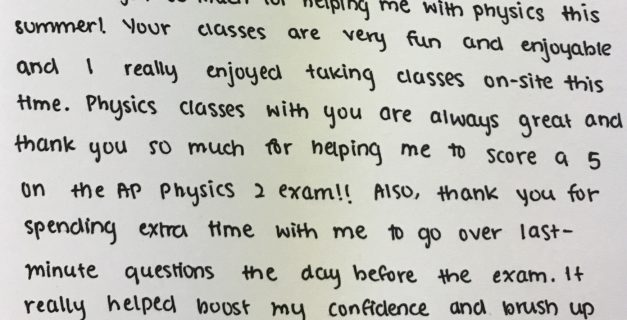 helping me with physics this
summer! Your classes are very fun and enjoyable
and I really enjoyed taking classes on-site this
time. Physics classes with you are always great and
thank you so much for helping me to score a 5
on the AP Physics 2 exam!! Also, thank you for
spending extra time with me to go over last-
minute questions the day before the exam. It
really helped boost my confidence and brush up